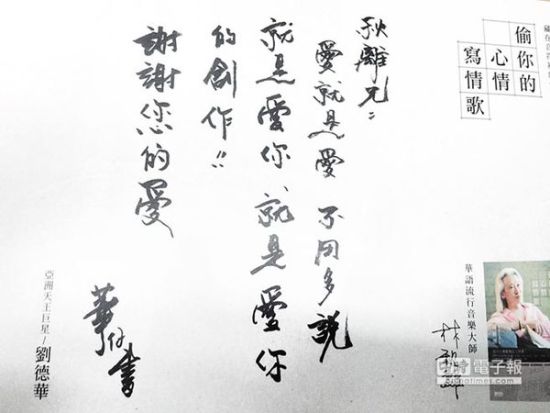 偷你的
心情
寫情歌
秋離兄:
愛就是愛 不用多說
就是愛你、就是愛你
的創作!!
謝謝您的愛
華仔書
亞洲天王巨星/劉德華
華語流行音樂大師
林秋離
中時電子報
chinatimes.com